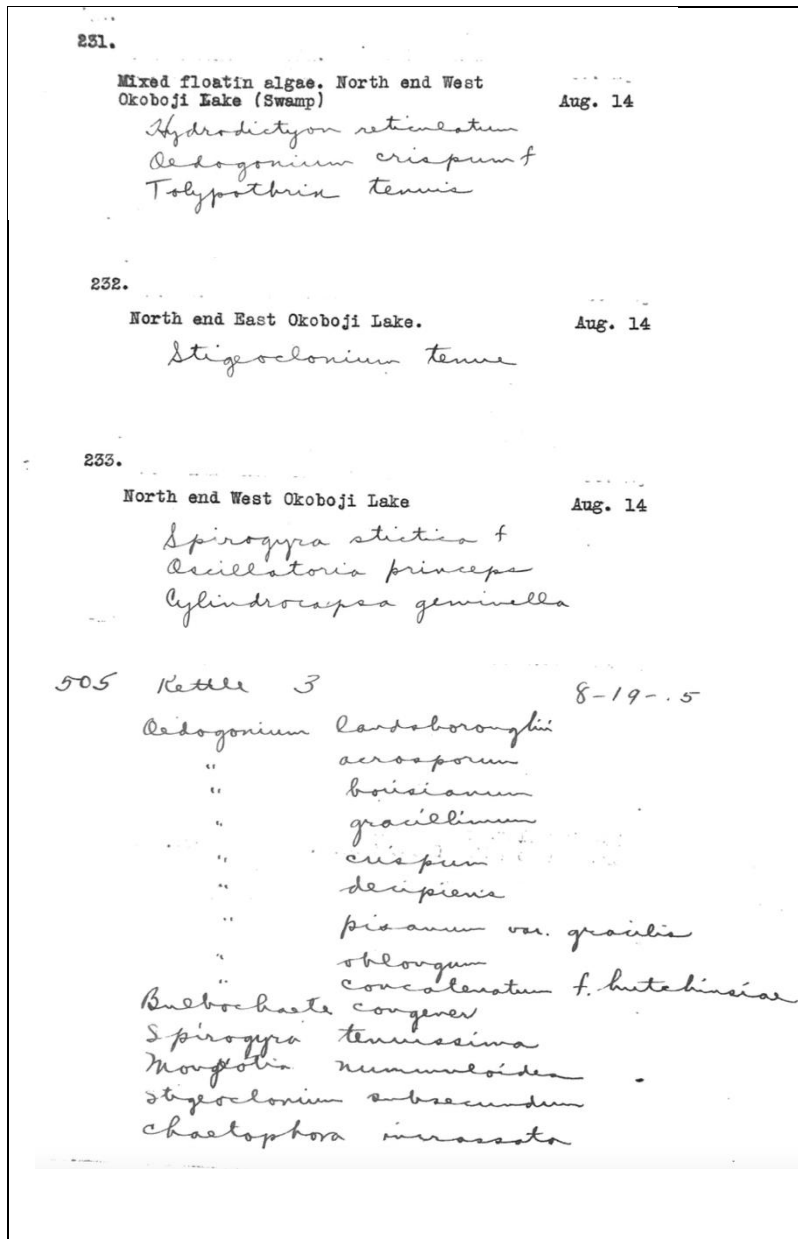 231.
Mixed floatin algae. North end West
Okoboji Lake (Swamp) Aug. 14
Hydrodictyon reticulatum
Oedogonium crispum f
Tolypothrix tenuis
232.
North end East Okoboji Lake. Aug. 14
Stigeoclonium tenue
233.
North end West Okoboji Lake Aug. 14
Spirogyra stictica f
Oscillatoria princeps
Cylindrocapsa geminella
505 Kettle 3 8-19-.5
Oedogonium landsboroughii
" acrosporum
" borisianum
" gracillimum
" crispum
" decipiens
" pisanum var. gracilis
" oblongum
" concatenatum f. hutchinsiae
Bulbochaete congener
Spirogyra tenuissima
Mougeotia nummuloidea
Stigeoclonium subsecundum
Chaetophora incrassata